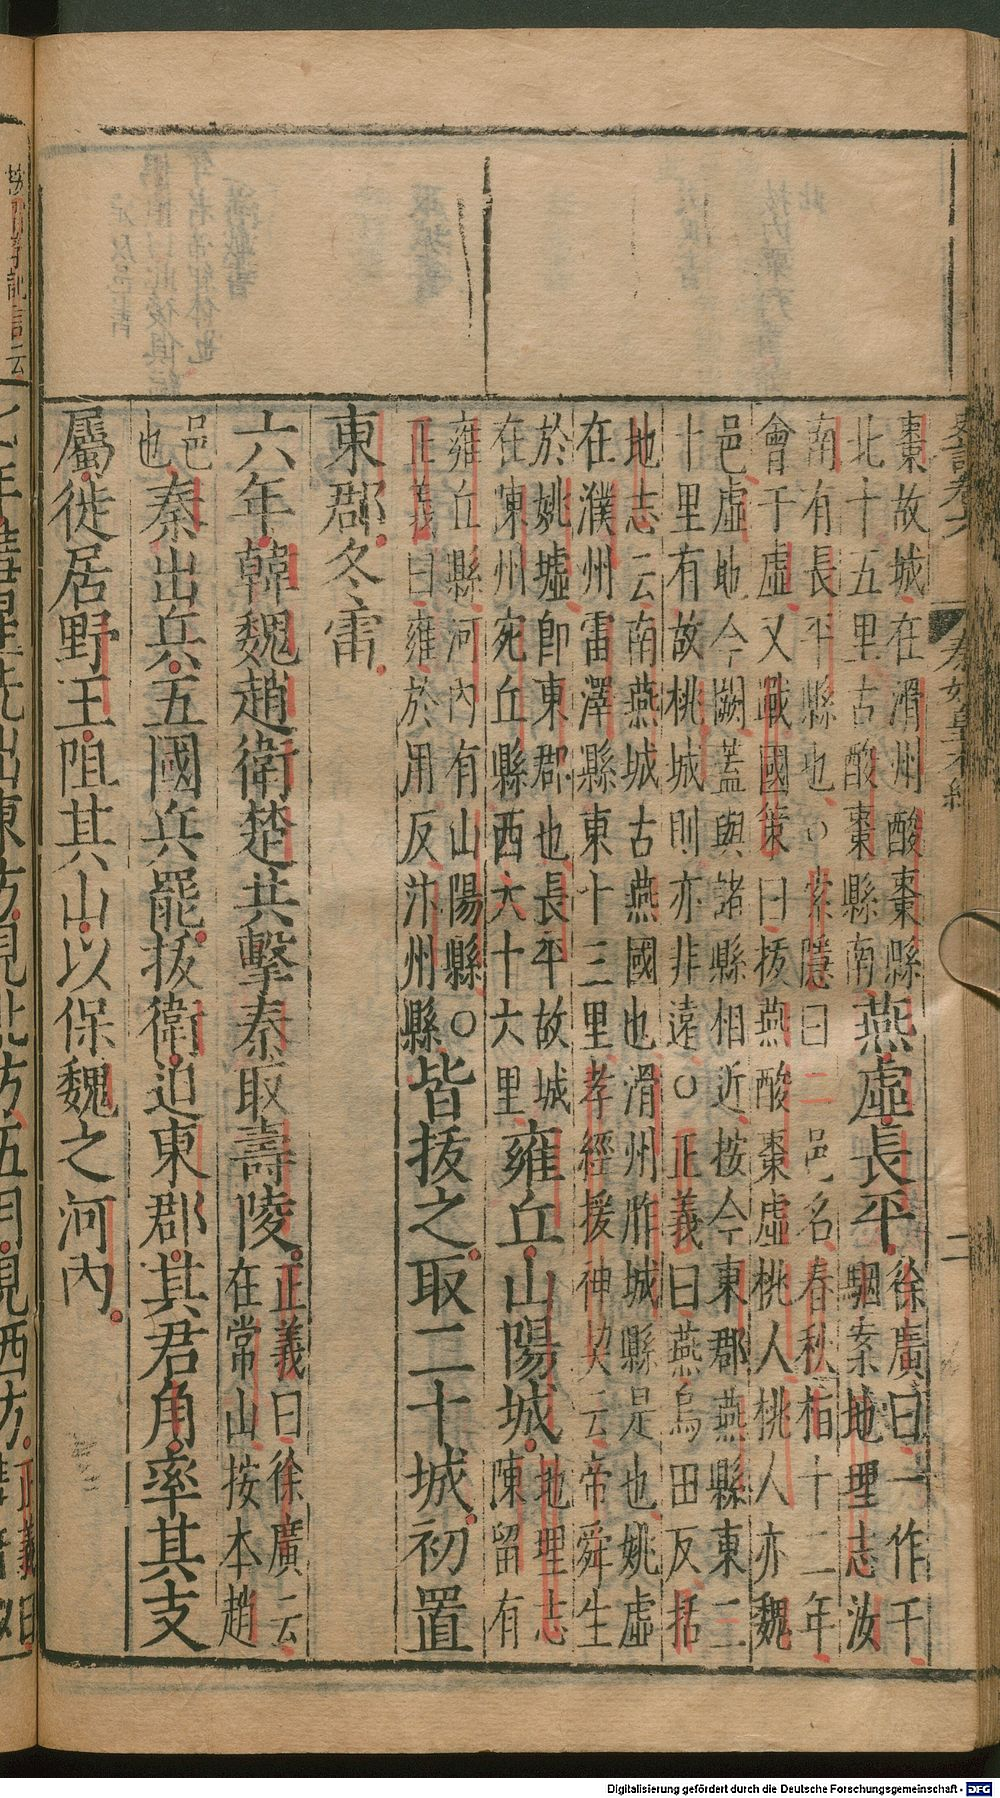 史記卷六 秦始皇本紀 二
棗故城在滑州酸棗縣
北十五里古酸棗縣南
燕虛長平
徐廣曰一作千
駰案地理志汝
南有長平縣也○索隱曰二邑名春秋桓十二年
會于虛又戰國策曰拔燕酸棗虛桃人桃人亦魏
邑虛地今闕蓋與諸縣相近按今東郡燕縣東二
十里有故桃城則亦非遠○正義曰燕烏田反括
地志云南燕城古燕國也滑州胙城縣是也姚虛
在濮州雷澤縣東十三里孝經援神契云帝舜生
於姚墟卽東郡也長平故城
在陳州宛丘縣西六十六里
雍丘山陽城
地理志
陳留有
雍丘縣河內有山陽縣○
正義曰雍於用反汴州縣
皆拔之取二十城初置
東郡冬雷
六年韓魏趙衛楚共擊秦取壽陵
正義曰徐廣云
在常山按本趙
邑
也
秦出兵五國兵罷拔衛迫東郡其君角率其支
屬徙居野王阻其山以保魏之河內
七年彗星先出東方見北方五月見西方
正義曰
Digitalisierung gefördert durch die Deutsche Forschungsgemeinschaft - DFG